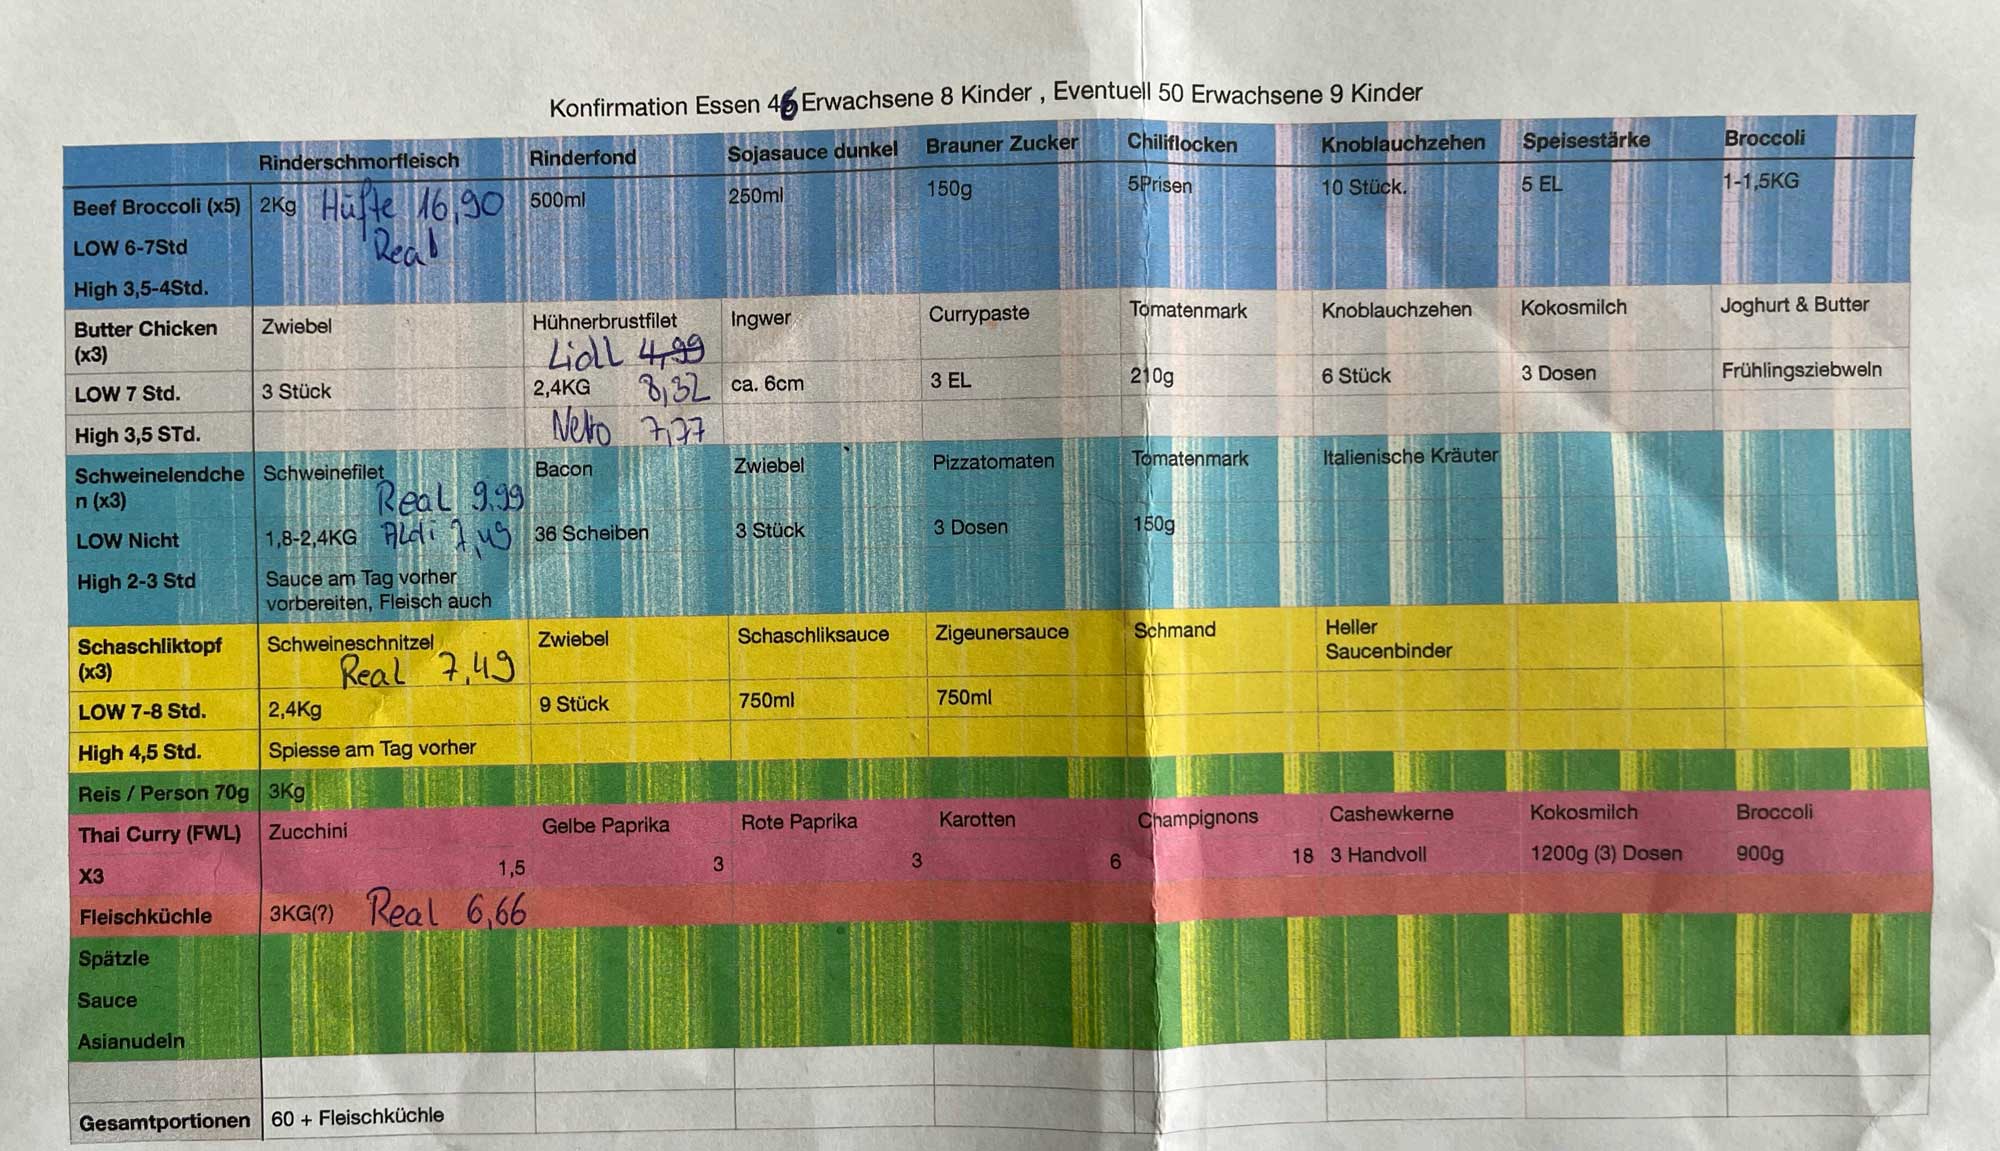 Konfirmation Essen 46 Erwachsene 8 Kinder , Eventuell 50 Erwachsene 9 Kinder
Rinderschmorfleisch Rinderfond Sojasauce dunkel Brauner Zucker Chiliflocken Knoblauchzehen Speisestärke Broccoli
Beef Broccoli (x5) 2Kg Hüfte 16,90 500ml 250ml 150g 5Prisen 10 Stück. 5 EL 1-1,5KG
Real
LOW 6-7Std
High 3,5-4Std.
Butter Chicken Zwiebel Hühnerbrustfilet Ingwer Currypaste Tomatenmark Knoblauchzehen Kokosmilch Joghurt & Butter
(x3) Lidl 4,99
LOW 7 Std. 3 Stück 2,4KG 8,32 ca. 6cm 3 EL 210g 6 Stück 3 Dosen Frühlingsziebweln
High 3,5 STd. Netto 7,77
Schweinelendche Schweinefilet Bacon Zwiebel Pizzatomaten Tomatenmark Italienische Kräuter
n (x3) Real 9,99
LOW Nicht 1,8-2,4KG Aldi 7,49 36 Scheiben 3 Stück 3 Dosen 150g
High 2-3 Std Sauce am Tag vorher
vorbereiten, Fleisch auch
Schaschliktopf Schweineschnitzel Zwiebel Schaschliksauce Zigeunersauce Schmand Heller
(x3) Real 7,49 Saucenbinder
LOW 7-8 Std. 2,4Kg 9 Stück 750ml 750ml
High 4,5 Std. Spiesse am Tag vorher
Reis / Person 70g 3Kg
Thai Curry (FWL) Zucchini Gelbe Paprika Rote Paprika Karotten Champignons Cashewkerne Kokosmilch Broccoli
X3 1,5 3 3 6 18 3 Handvoll 1200g (3) Dosen 900g
Fleischküchle 3KG(?) Real 6,66
Spätzle
Sauce
Asianudeln
Gesamtportionen 60 + Fleischküchle